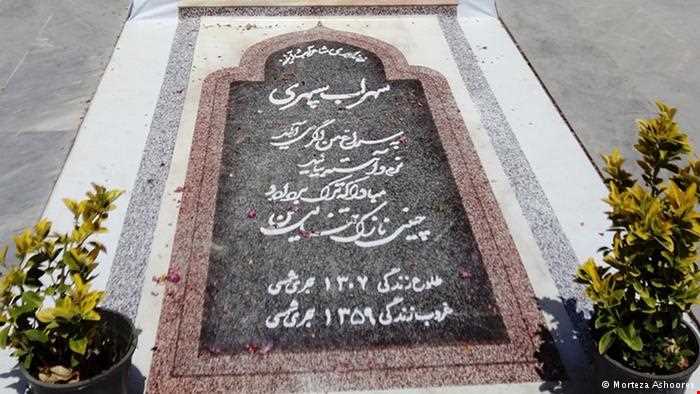 شاعر
سهراب سپهری
به سراغ من اگر می آیید
نرم و آهسته بیایید
مبادا که ترک بردارد
چینی نازک تنهایی من
طلوع زندگی ۱۳۰۷ هجری شمسی
غروب زندگی ۱۳۵۹ هجری شمسی
© Morteza Ashoores